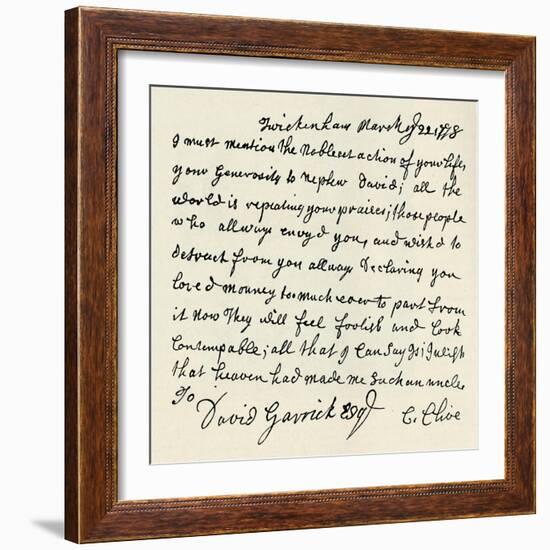 Twickenham March ye 22 1778
I must mention the Noblest action of your life,
your Generosity to Nephew David; all the
world is repeating your praises; those people
who allways envyd you, and wishd to
detract from you allways Declaring you
loved mouney too much ever to part from
it Now They will feel foolish and look
Contempable; all that I Can Say Is; I wish
that heaven had made me Such an uncle
To
David Garrick Esqr C. Clive